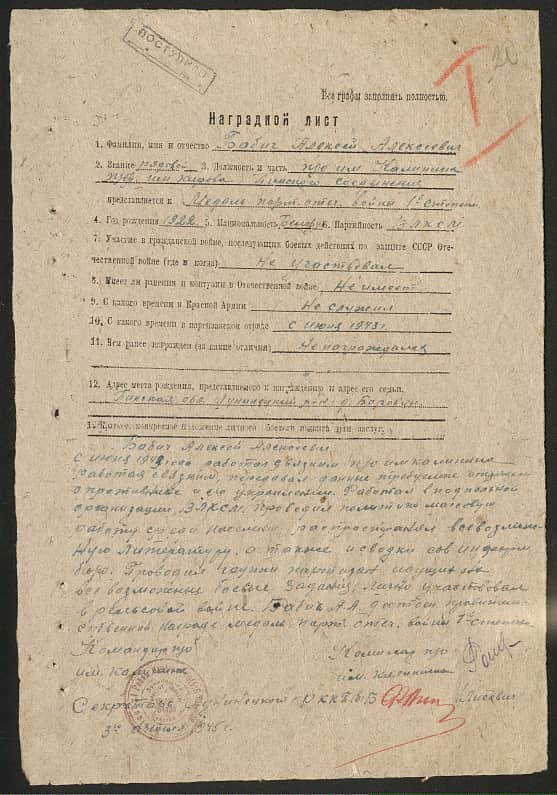 ПОСТУПИЛО
20
Все графы заполнить полностью.
Наградной лист
1. Фамилия, имя и отчество Бабич Алексей Алексеевич
2. Звание рядовой 3. Должность и часть про им Калинина
им. Кирова Пинского соединения
представляется к Медаль парт. отеч. войны 1ой степени
4. Год рождения 1922 5. Национальность Белорус 6. Партийность ВЛКСМ
7. Участие в гражданской войне, последующих боевых действиях по защите СССР Оте-
чественной войне (где и когда) Не участвовал
8. Имеет ли ранения и контузии в Отечественной войне Не имеет
9. С какого времени в Красной Армии Не служил
10. С какого времени в партизанском отряде с июня 1943 г.
11. Чем ранее награжден (за какие отличия) Не награждался
12. Адрес места рождения, представляемого к награждению и адрес его семьи.
Пинская обл. Лунинецкий р-н д.
1. Краткое, конкретное изложение личного боевого подвига или заслуг.
Бабич Алексей Алексеевич
с июня работал связным про им Калинина
Работая связным, передавал данные
о противнике и его укреплении. Работал в подпольной
организации ВЛКСМ. Проводил политико массовую
работу среди населения, распространял всевозмож-
ную литературу, а также и сводки сов информ
бюро. Проводил группы партизан идущих на
всевозможные боевые задания, лично участвовал
в рельсовой войне. Бабич А.А. достоин правитель-
ственной награде медаль парт. отеч. войны 1ой степени
Командир про
им. Калинина
Комиссар про
им. Калинина
Секретарь Лунинецкого РК КП(б)Б Лисович